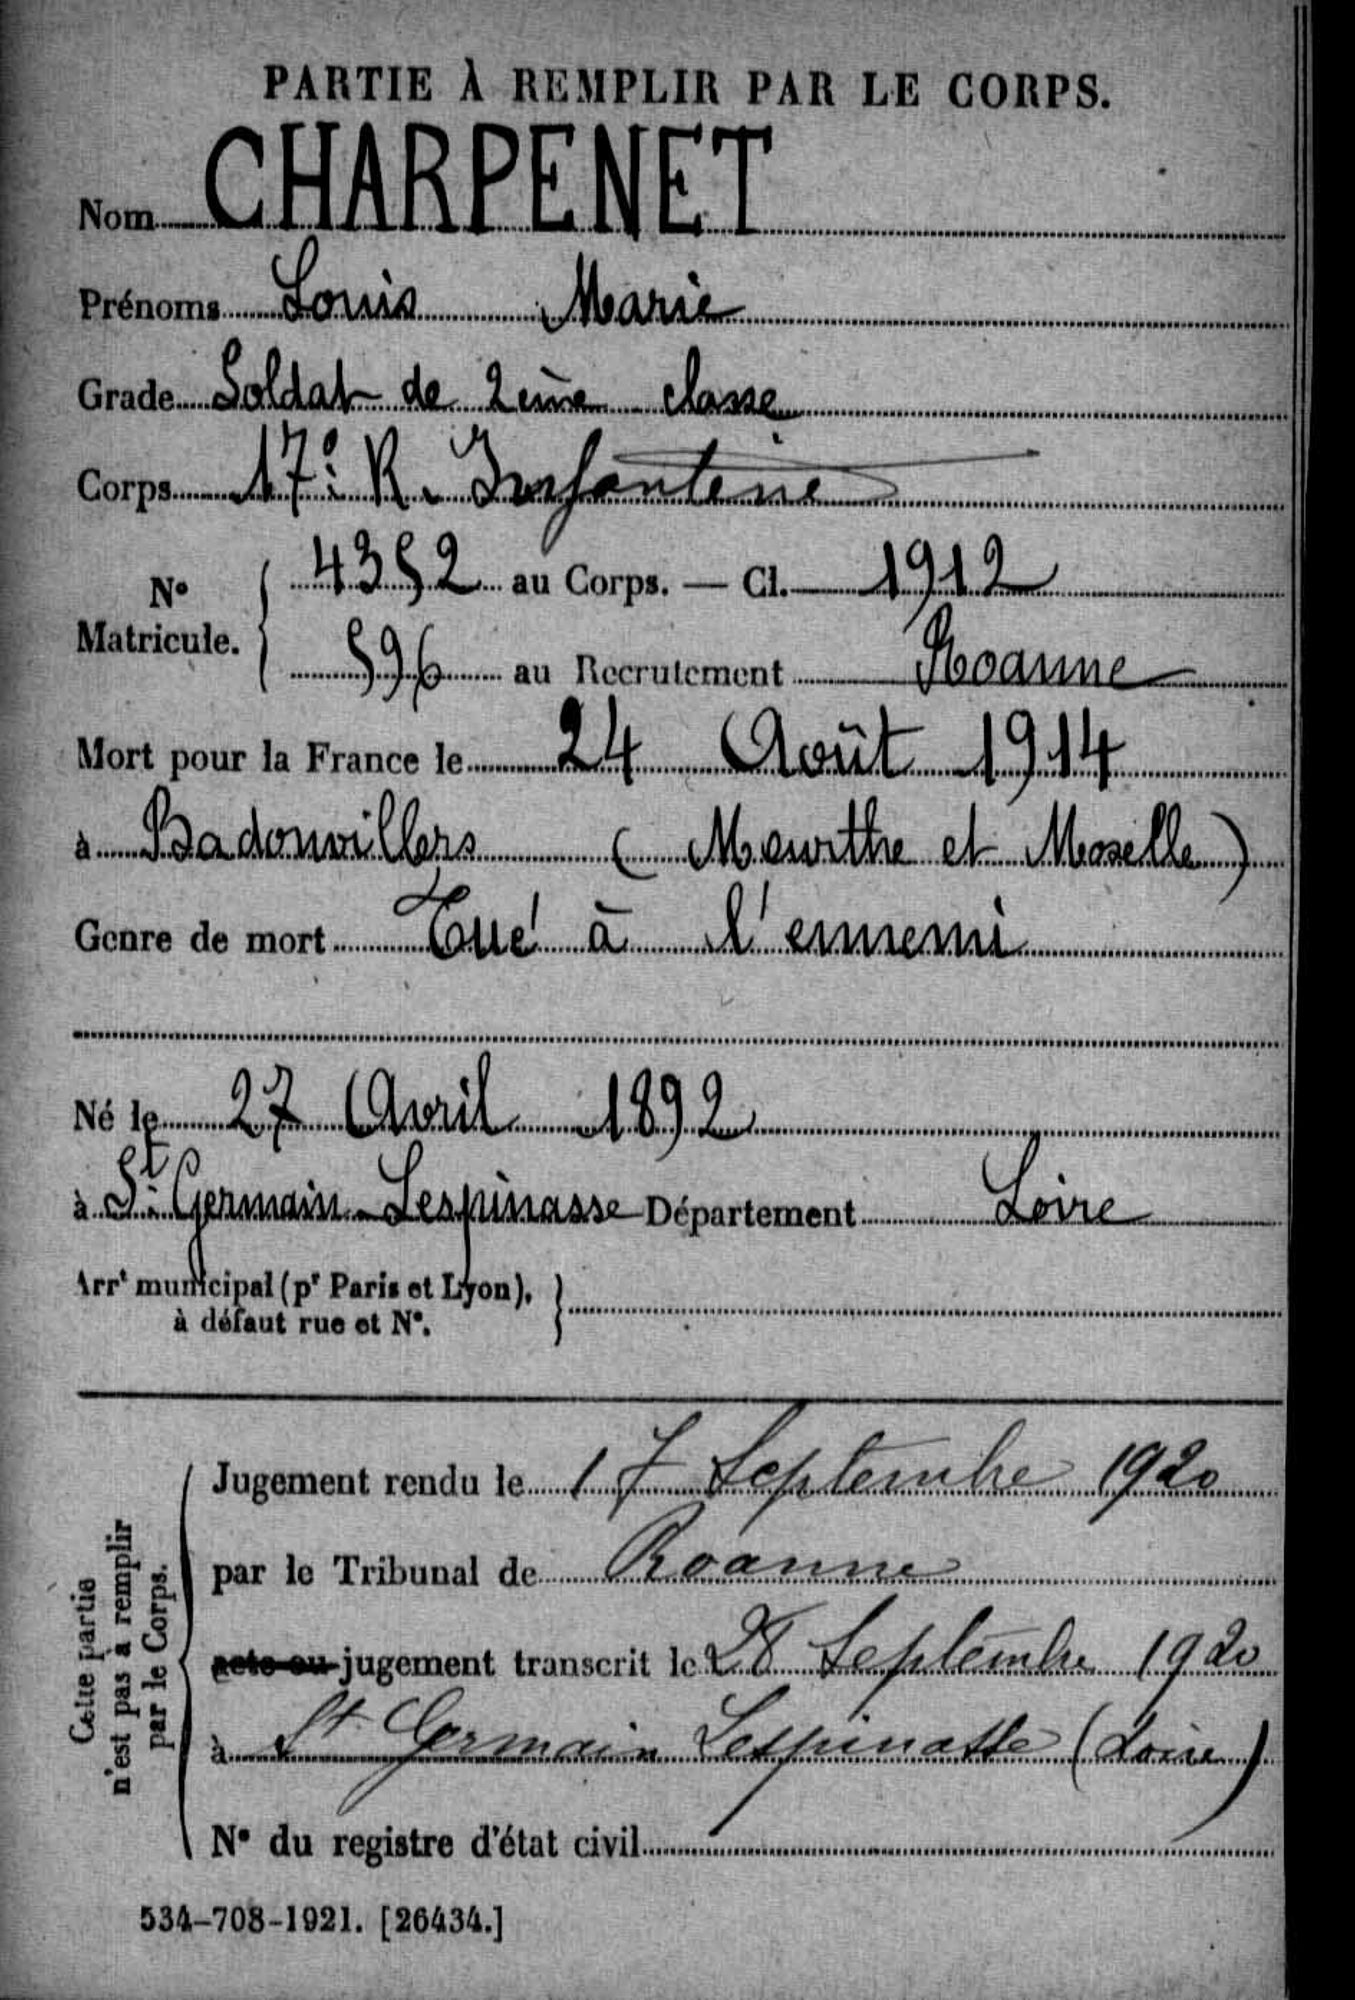 PARTIE À REMPLIR PAR LE CORPS.
Nom CHARPENET
Prénoms Louis Marie
Grade Soldat de 2ème classe
Corps 17e R. Infanterie
No Matricule. { 4352 au Corps. — Cl. 1912
596 au Recrutement Roanne
Mort pour la France le 24 Août 1914
à Badonvillers (Meurthe et Moselle)
Genre de mort Tué à l'ennemi
Né le 27 Avril 1892
à St Germain-Lespinasse Département Loire
Arrt municipal (pr Paris et Lyon), }
à défaut rue et No.
Cette partie
n'est pas à remplir
par le Corps.
Jugement rendu le 17 Septembre 1920
par le Tribunal de Roanne
acte ou jugement transcrit le 28 Septembre 1920
à St Germain Lespinasse (Loire)
No du registre d'état civil
534-708-1921. [26434.]